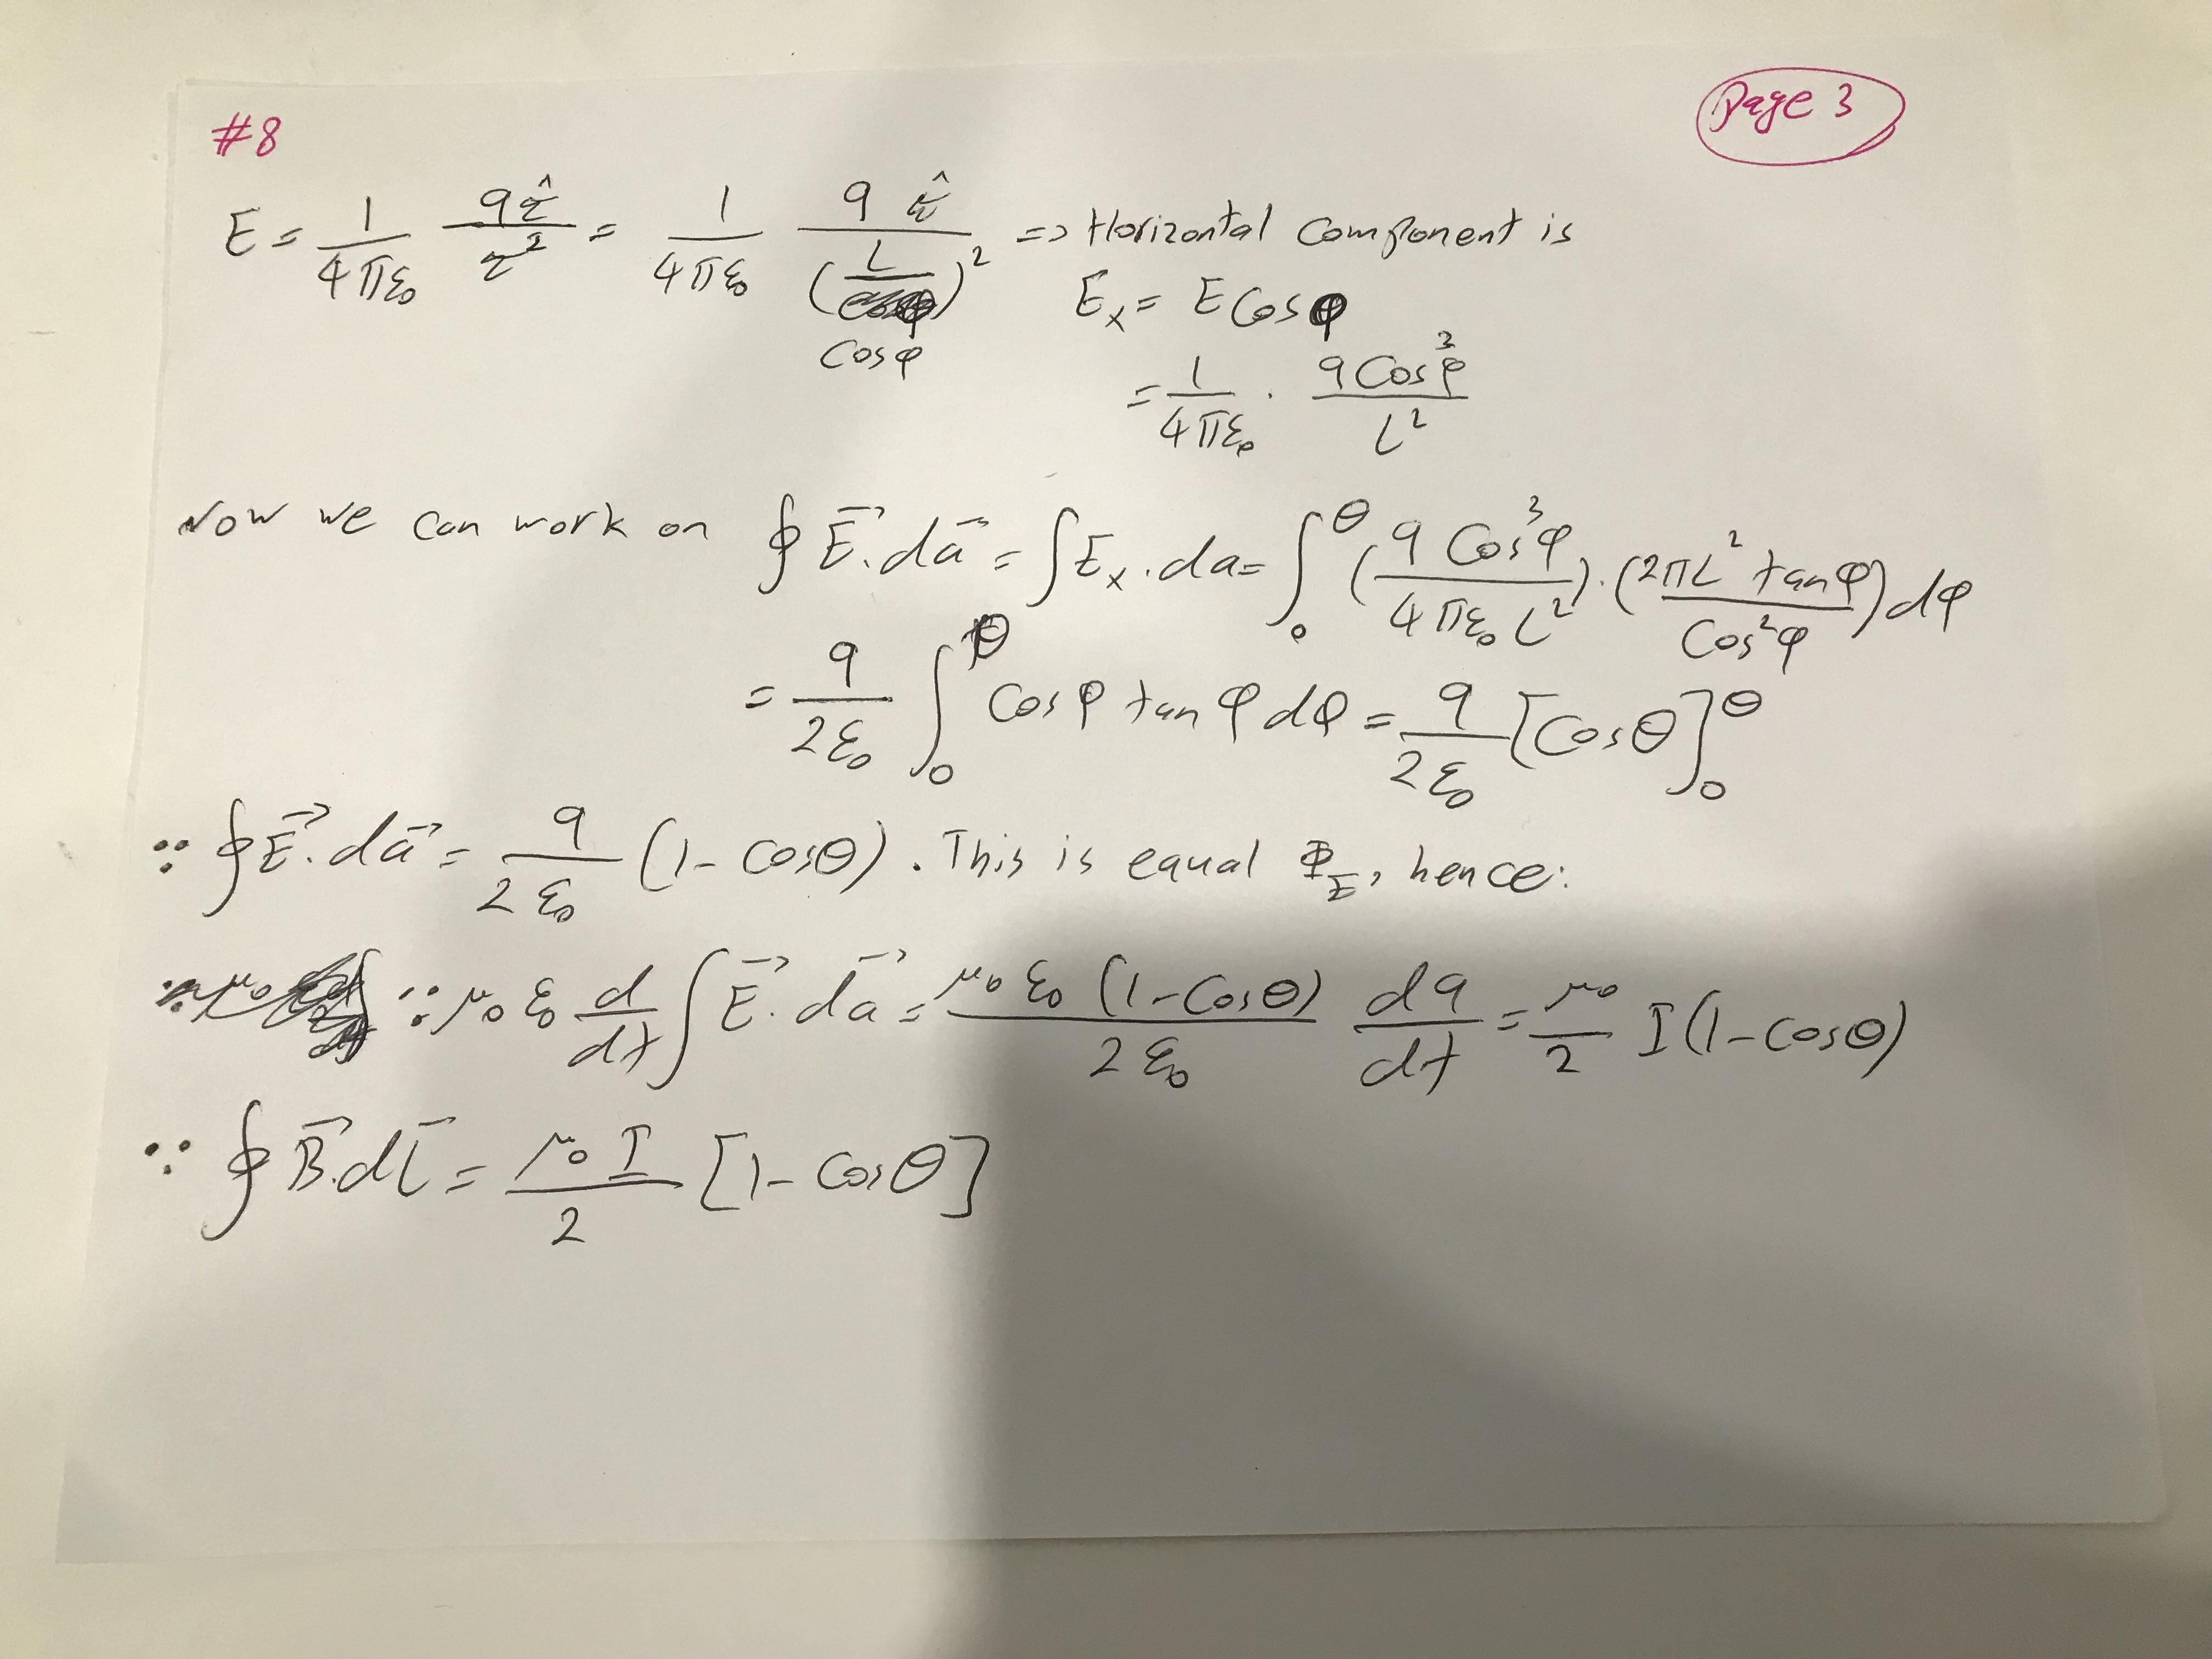 Page 3
#8
E = 1/(4πε₀) q r̂/r² = 1/(4πε₀) q r̂/(L/cosφ)² => Horizontal component is
Eₓ = E cosφ
= 1/(4πε₀) · q cos³φ/L²
Now we can work on ∮E⃗.da⃗ = ∫Eₓ.da = ∫₀^θ (q cos³φ/(4πε₀L²)).(2πL² tanφ/cos²φ) dφ
= q/(2ε₀) ∫₀^θ cosφ tanφ dφ = q/(2ε₀) [cosθ]₀^θ
∵ ∮E⃗.da⃗ = q/(2ε₀) (1-cosθ). This is equal Φ_E, hence:
∵ μ₀ε₀ d/dt ∫E⃗.da⃗ = μ₀ε₀(1-cosθ)/(2ε₀) dq/dt = μ₀/2 I(1-cosθ)
∵ ∮B⃗.dl⃗ = μ₀I/2 [1-cosθ]